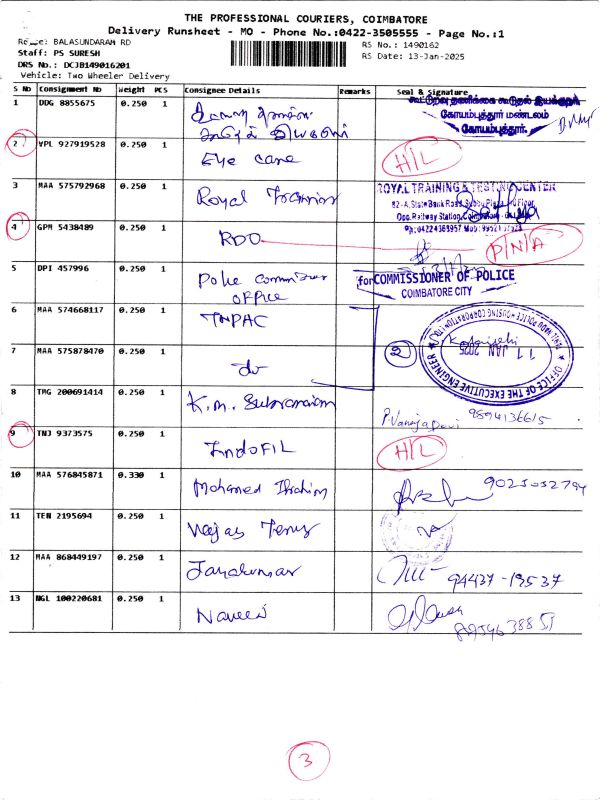 THE PROFESSIONAL COURIERS, COIMBATORE
Delivery Runsheet - MO - Phone No.:0422-3505555 - Page No.:1
BALASUNDARAM RD
RS No.: 1490162
Staff: PS SURESH
RS Date: 13-Jan-2025
DRS No.: DCJB149016201
Vehicle: Two Wheeler Delivery
S No Consignment No Weight PCS Consignee Details Remarks Seal & Signature
1 DDG 8855675 0.250 1
கோயம்புத்தூர் மண்டலம்
கோயம்புத்தூர்.
2 VPL 927919528 0.250 1 Eye care H/L
3 MAA 575792968 0.250 1 Royal Training ROYAL TRAINING & TESTING CENTER
82-A, State Bank Road,
Opp. Railway Station,
4 GPM 5438489 0.250 1 RDO P/N/A
5 DPI 457996 0.250 1 Police Commissioner
office
for COMMISSIONER OF POLICE
COIMBATORE CITY
6 MAA 574668117 0.250 1 TNPAC
7 MAA 575878470 0.250 1 do 2
TAMIL NADU POLICE HOUSING CORPORATION
11 JAN 2025
OFFICE OF THE EXECUTIVE ENGINEER
8 TMG 200691414 0.250 1 K.M. Subramaniam P.Vanaja Devi 9894136615
9 TNJ 9373575 0.250 1 INDOFIL H/L
10 MAA 576845871 0.330 1 Mohamed Ibrahim 9025032794
11 TEN 2195694 0.250 1
12 MAA 868449197 0.250 1 Jayakumar 94437-19537
13 NGL 100220681 0.250 1 Naveen
3